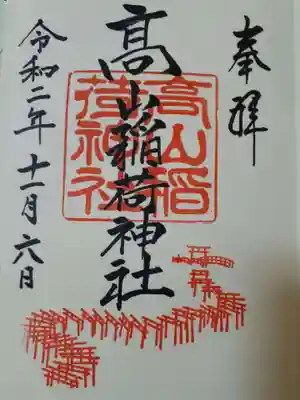 奉拝
高山稲荷神社
高山稲荷神社
令和二年十一月六日